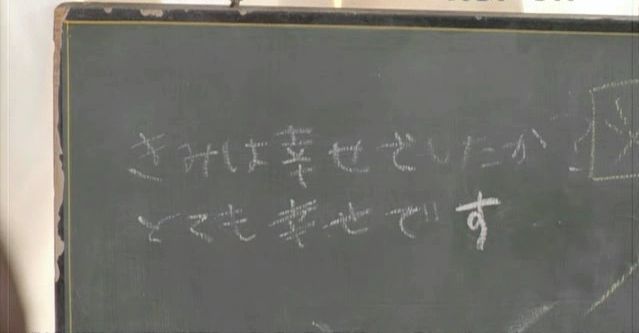 きみは幸せでしたか?
とても幸せです